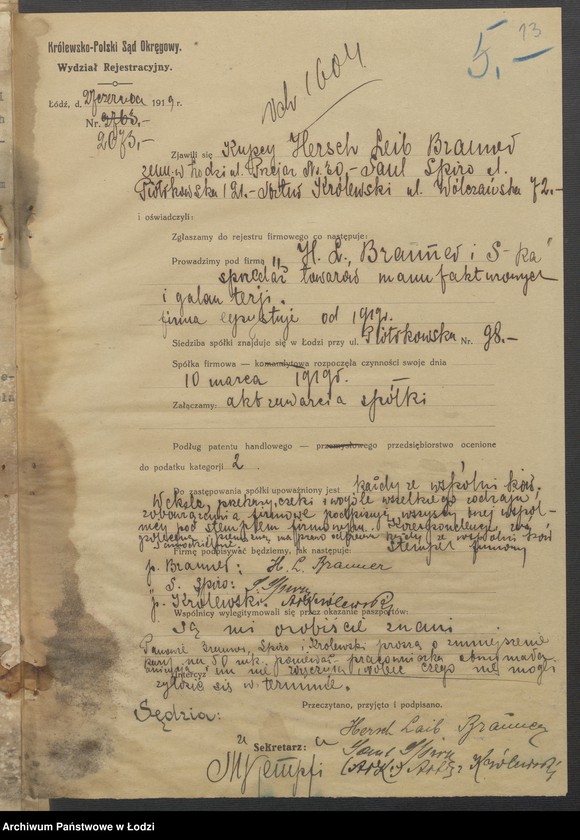 13
5.-
Królewsko-Polski Sąd Okręgowy.
Wydział Rejestracyjny.
Łódź, d. 27 czerwca 1919 r.
Nr. 2763.-
2073.-
1604
Zjawili się Kupcy Hersch Leib Brauner
zam. w Łodzi ul. Przejazd No 30,- Saul Spiro ul.
Piotrkowska 121.- Artur Królewski ul. Wólczańska 72.-
i oświadczyli:
Zgłaszamy do rejestru firmowego co następuje:
Prowadzimy pod firmą „H. L. Brauner i S-ka"
sprzedaż towarów manufakturowych
i galanterji.
firma egzystuje od 1919r.
Siedziba spółki znajduje się w Łodzi przy ul. Piotrkowska Nr. 98.-
Spółka firmowa — komandytowa rozpoczęła czynności swoje dnia
10 marca 1919r.
Załączamy: akt zawarcia spółki
Podług patentu handlowego — przemysłowego przedsiębiorstwo ocenione
do podatku kategorji 2
Do zastępowania spółki upoważniony jest każdy ze wspólników.
Weksle, przekazy, czeki i wogóle wszelkiego rodzaju
zobowiązania firmowe podpisują wszyscy trzej wspól-
nicy pod stemplem firmowym. Korespondencję, zaś
prawo odbioru każdy ze wspólników
Firmę podpisywać będziemy, jak następuje: stempel firmowy
p. Brauner: H. L. Brauner
" S. Spiro: S. Spiro
"p. Królewski: Art Królewski
Wspólnicy wylegitymowali się przez okazanie paszportów:
Są mi osobiście znani.
Panowie Brauner, Spiro i Królewski proszą o zmniejszenie
kary na 50 mk, ponieważ
wobec czego nie mogli
w terminie.
Przeczytano, przyjęto i podpisano.
Sędzia:
Hersch Laib Brauner
Sekretarz:
Saul Spiro
Królewski
Archiwum Państwowe w Łodzi